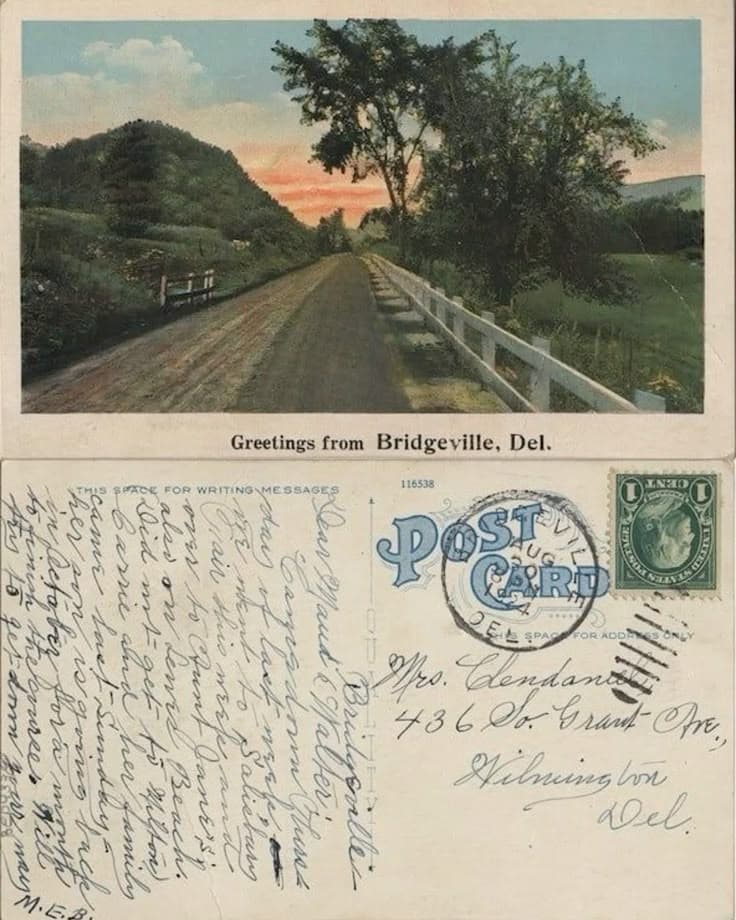 Greetings from Bridgeville, Del.
THIS SPACE FOR WRITING MESSAGES
116538
POST CARD
THIS SPACE FOR ADDRESS ONLY
UNITED STATES POSTAGE
FRANKLIN
1 CENT 1
AUG
1924
DEL.
Bridgeville-
Dear Maud & Walter,
Came down Thurs-
day of last week
We went to Salisbury
Fair this week and
over to Aunt Janes;
also on Lewes Beach.
Did not get to Milton
Carrie and her family
came last Sunday-
her son is going back
in October for a month
to finish the course. Will
try to get down your way
M.E.B.
Mrs. Clendaniel
436 So. Grant Ave.,
Wilmington
Del.